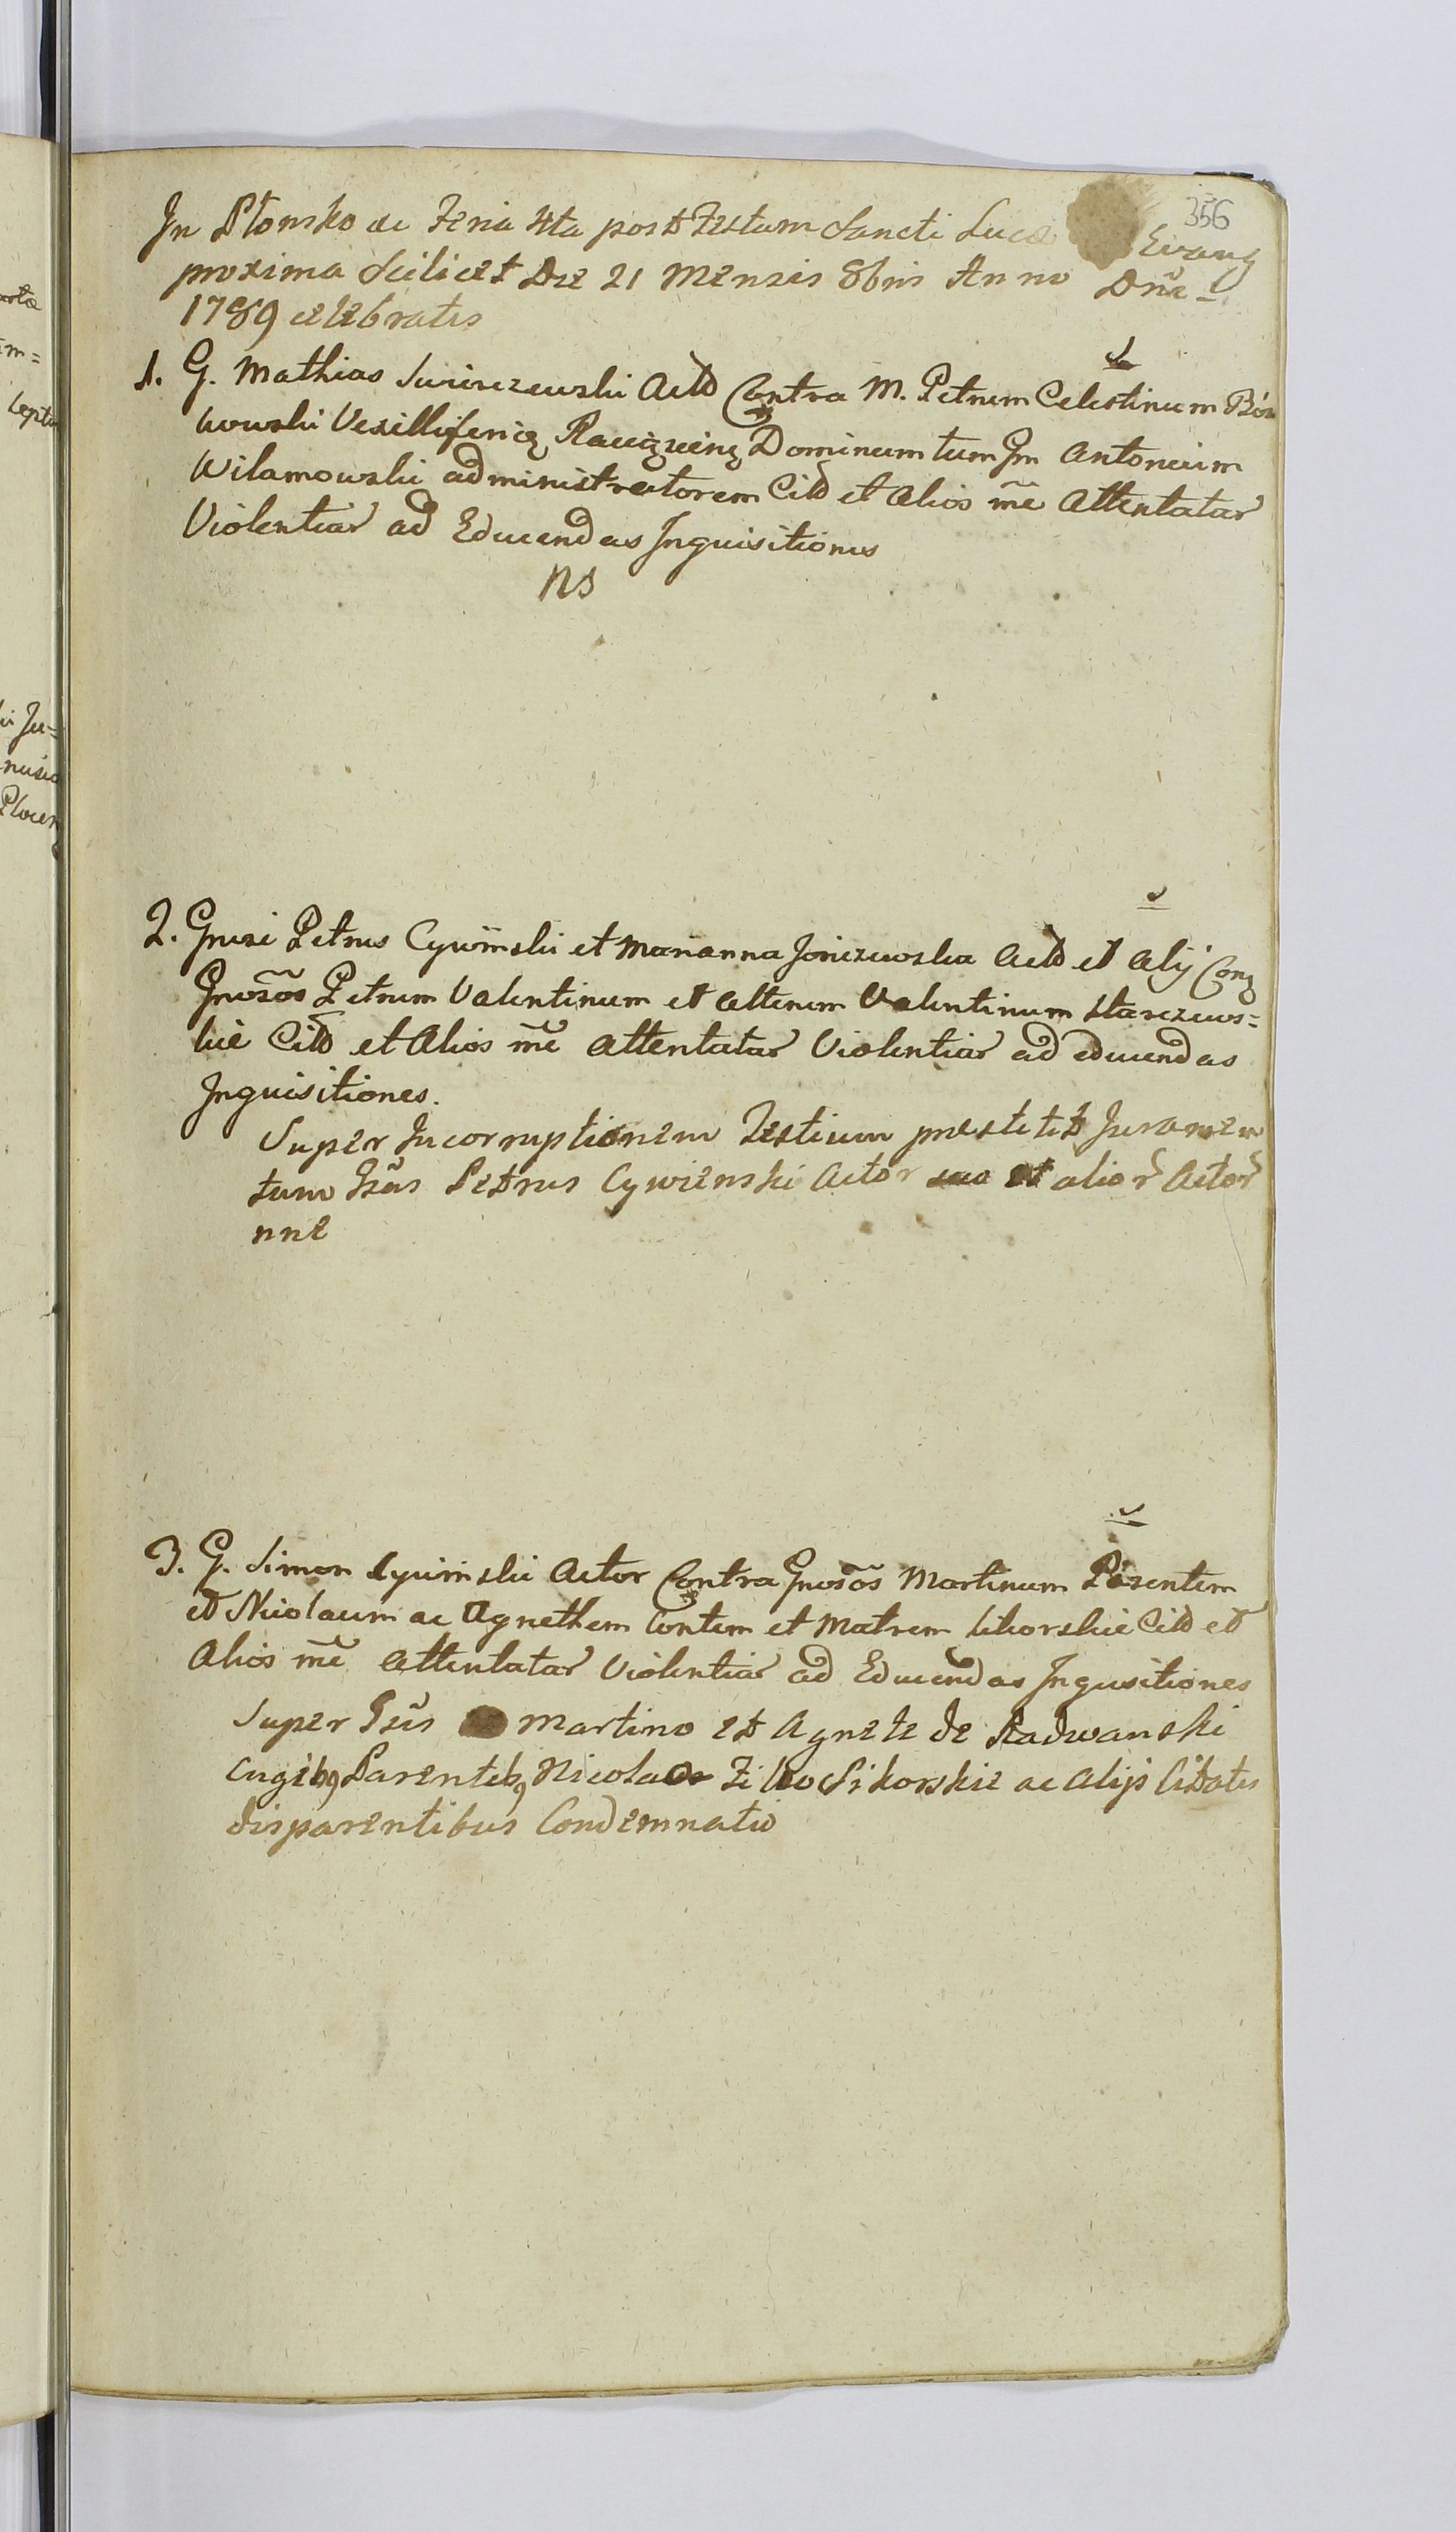 356
In Płonsko ac Feria 4ta post Festum Sancti Lucæ Evang
proxima Scilicet Die 21 Mensis 8bris Anno Dñi
1789 celebratis
1. G. Mathias Act Contra M. Petrum Celestinum
Vexilliferię Dominum tum Gm Antonium
Wilamowski administratorem Cit et Alios rñe Attentatar
Violentiar ad Educendas Inquisitiones
NS
2. Petrus Cywinski et Marianna Act et Alij Con
Gnosos Petrum Valentinum et Alterum Valentinum Starczews=
kie Cit et Alios rñe Attentatar Violentiar ad educendas
Inquisitiones.
Super Incorruptionem Testium prestitit Juramen
tum Petrus Cywienski Actor suo et alior Actor
nne
3. G. Simon Cywinski Actor Contra Gnosos Martinum Parentem
et Nicolaum ac Agnethem et Matrem Sikorskie Cit et
Alios rñe Attentatar Violentiar ad Educendas Inqusitiones
Super Martino et Agnete de Radwanski
Parentibq Nicolao Filio Sikorskie ac Alijs Citatis
disparentibus Condemnatio